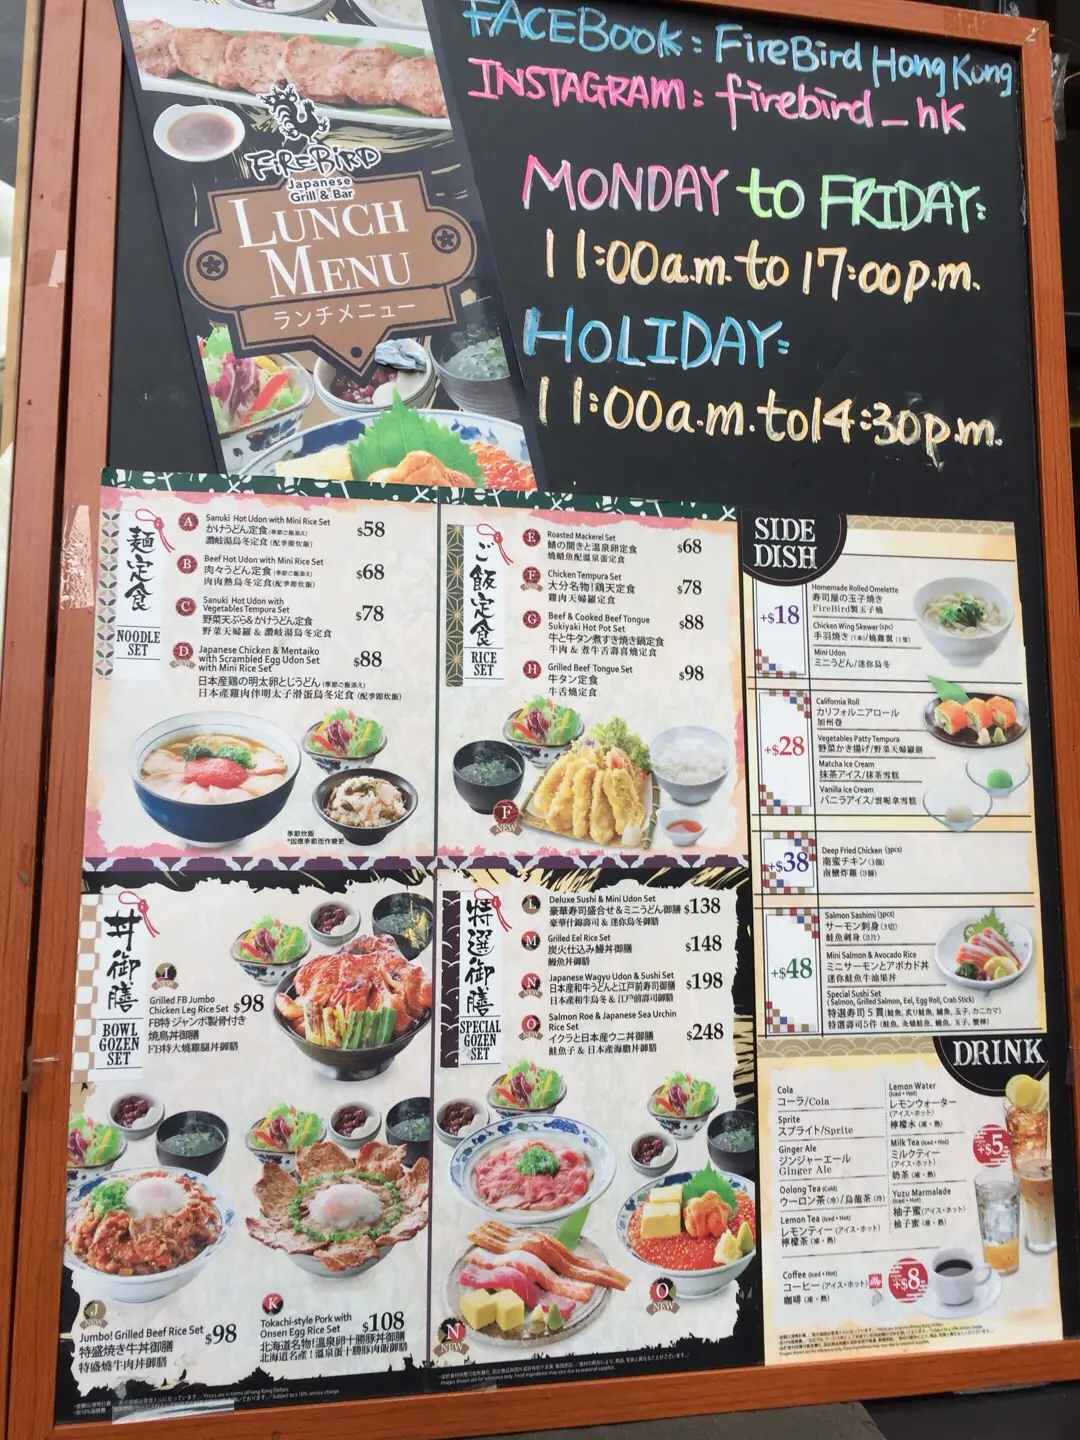 FACEBook: FireBird Hong Kong
INSTAGRAM: firebird_hk
MONDAY to FRIDAY:
11:00a.m. to 17:00p.m.
HOLIDAY:
11:00a.m. to 14:30p.m.
FIREBIRD
Japanese
Grill & Bar
LUNCH
MENU
ランチメニュー
麺定食
NOODLE
SET
A Sanuki Hot Udon with Mini Rice Set $58
かけうどん定食 (季節ご飯添え)
讚岐湯烏冬定食 (配季節炊飯)
B Beef Hot Udon with Mini Rice Set $68
肉々うどん定食 (季節ご飯添え)
肉肉熱烏冬定食 (配季節炊飯)
C Sanuki Hot Udon with
Vegetables Tempura Set $78
野菜天ぷら&かけうどん定食
野菜天婦羅 & 讚岐湯烏冬定食
D Japanese Chicken & Mentaiko
with Scrambled Egg Udon Set
with Mini Rice Set $88
日本産鶏の明太卵とじうどん (季節ご飯添え)
日本產雞肉伴明太子滑蛋烏冬定食 (配季節炊飯)
季節炊飯
*因應季節而作變更
ご飯定食
RICE
SET
E Roasted Mackerel Set $68
鯖の開きと温泉卵定食
燒鯖魚配溫泉蛋定食
F Chicken Tempura Set $78
NEW
大分名物!鶏天定食
雞肉天婦羅定食
G Beef & Cooked Beef Tongue
Sukiyaki Hot Pot Set $88
牛と牛タン煮すき焼き鍋定食
牛肉 & 煮牛舌壽喜燒定食
H Grilled Beef Tongue Set $98
牛タン定食
牛舌燒定食
F
NEW
丼御膳
BOWL
GOZEN
SET
I
Grilled FB Jumbo
Chicken Leg Rice Set $98
FB特ジャンボ製骨付き
焼鳥丼御膳
FB特大燒雞腿丼御膳
J
NEW
Jumbo! Grilled Beef Rice Set $98
特盛焼き牛丼御膳
特盛燒牛肉丼御膳
K
Tokachi-style Pork with
Onsen Egg Rice Set $108
北海道名物!温泉卵十勝豚丼御膳
北海道名產!溫泉蛋十勝豚肉飯御膳
特選御膳
SPECIAL
GOZEN
SET
L Deluxe Sushi & Mini Udon Set $138
豪華寿司盛合せ & ミニうどん御膳
豪華什錦壽司 & 迷你烏冬御膳
M Grilled Eel Rice Set $148
炭火仕込み鰻丼御膳
鰻魚丼御膳
N Japanese Wagyu Udon & Sushi Set $198
日本産和牛うどんと江戸前寿司御膳
日本產和牛烏冬 & 江戶前壽司御膳
O Salmon Roe & Japanese Sea Urchin
Rice Set $248
イクラと日本産ウニ丼御膳
鮭魚子 & 日本產海膽丼御膳
N
NEW
O
NEW
SIDE
DISH
+$18
Homemade Rolled Omelette
寿司屋の玉子焼き
FireBird製玉子燒
Chicken Wing Skewer (1pc)
手羽焼き (1本)/燒雞翼 (1隻)
Mini Udon
ミニうどん/迷你烏冬
+$28
California Roll
カリフォルニアロール
加州卷
Vegetables Patty Tempura
野菜かき揚げ/野菜天婦羅餅
Matcha Ice Cream
抹茶アイス/抹茶雪糕
Vanilla Ice Cream
バニラアイス/雲呢拿雪糕
+$38
Deep Fried Chicken (3pcs)
南蛮チキン (3個)
南蠻炸雞 (3個)
+$48
Salmon Sashimi (3pcs)
サーモン刺身 (3切)
鮭魚刺身 (3片)
Mini Salmon & Avocado Rice
ミニサーモンとアボカド丼
迷你鮭魚牛油果丼
Special Sushi Set
(Salmon, Grilled Salmon, Eel, Egg Roll, Crab Stick)
特選寿司5貫 (鮭魚, 炙り鮭魚, 鰻魚, 玉子, カニカマ)
特選壽司5件 (鮭魚, 火炙鮭魚, 鰻魚, 玉子, 蟹棒)
DRINK
Cola
コーラ/Cola
Sprite
スプライト/Sprite
Ginger Ale
ジンジャーエール
Ginger Ale
Oolong Tea (Cold)
ウーロン茶 (冷)/烏龍茶 (冷)
Lemon Tea (Iced • Hot)
レモンティー (アイス・ホット)
檸檬茶 (凍・熱)
Lemon Water
(Iced • Hot)
レモンウォーター
(アイス・ホット)
檸檬水 (凍・熱)
Milk Tea (Iced • Hot)
ミルクティー
(アイス・ホット)
奶茶 (凍・熱)
Yuzu Marmalade
(Iced • Hot)
柚子蜜 (アイス・ホット)
柚子蜜 (凍・熱)
+$5
Coffee (Iced • Hot)
コーヒー (アイス・ホット)
咖啡 (凍・熱)
illy
+$8
Prices are in terms of Hong Kong Dollars.
Subject to a 10% service charge.
Images shown are for reference only. Food ingredients may vary due to seasonal supplies.